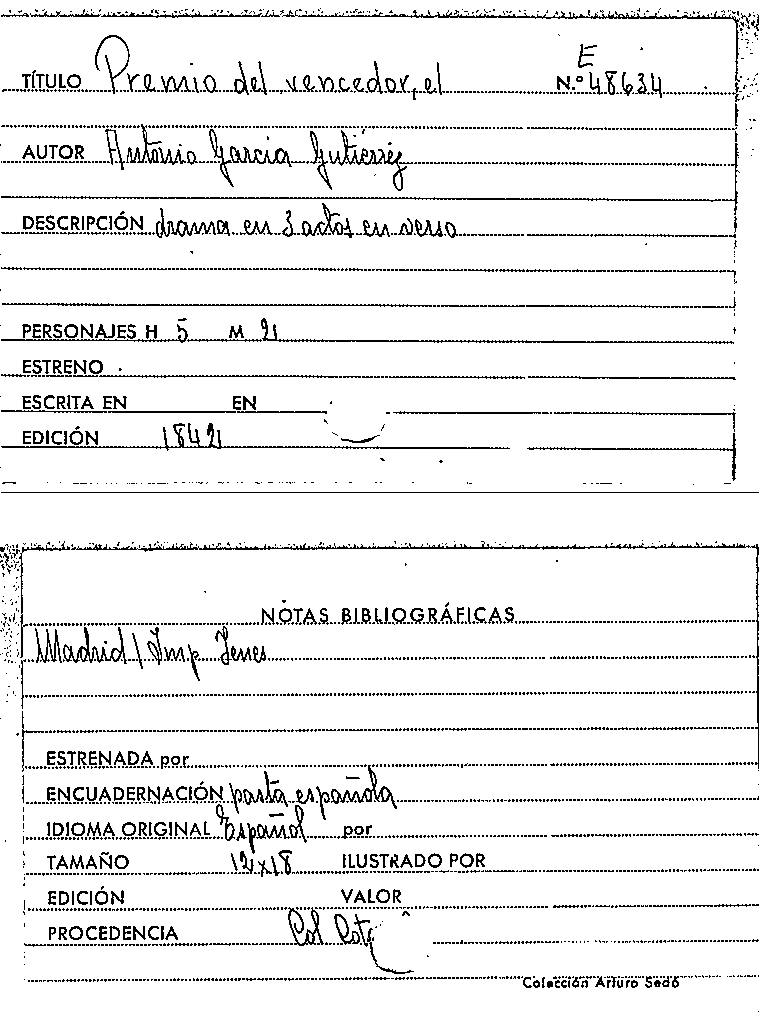 E
TÍTULO Premio del vencedor, el N.º 48634
AUTOR Antonio García Gutiérrez
DESCRIPCIÓN drama en 3 actos en verso
PERSONAJES H 5 M 2
ESTRENO
ESCRITA EN EN
EDICIÓN 1842
NOTAS BIBLIOGRÁFICAS
Madrid / Imp Yenes
ESTRENADA por
ENCUADERNACIÓN pasta española
IDIOMA ORIGINAL Español por
TAMAÑO 12x18 ILUSTRADO POR
EDICIÓN VALOR
PROCEDENCIA Col
Colección Arturo Sedó